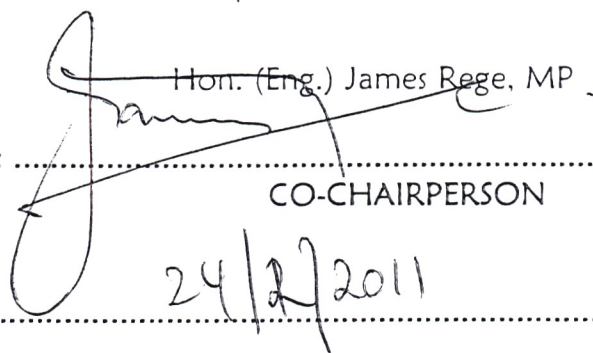 Hon. (Eng.) James Rege, MP
CO-CHAIRPERSON
24/2/2011